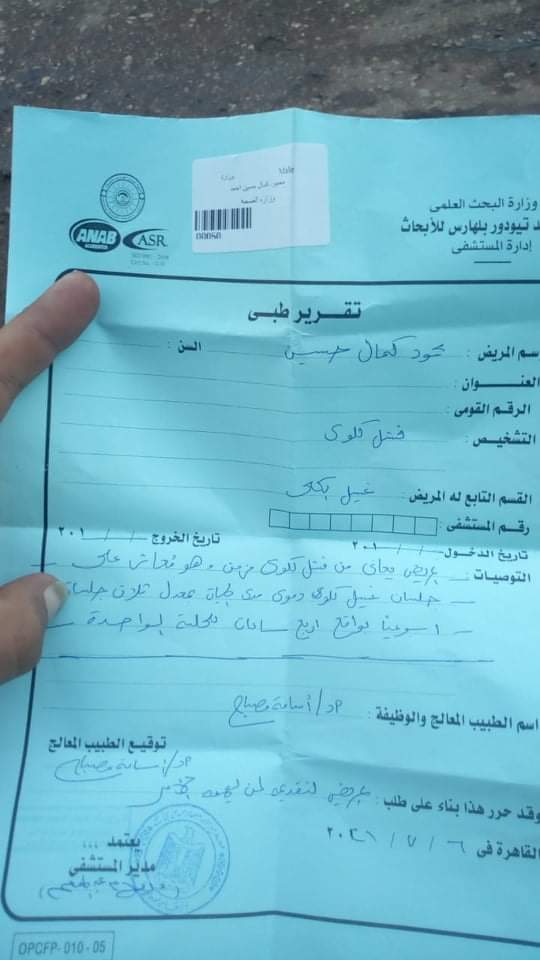 وزارة البحث العلمى
د تيودور بلهارس للأبحاث
إدارة المستشفى
Male
وزارة
كمال حسين
وزارة الصحة
00080
ANAB
ASR
تقرير طبى
سم المريض : محمود كمال حسين السن :
العنوان :
الرقم القومى :
التشخيص : فشل كلوى
القسم التابع له المريض : غسيل كلى
رقم المستشفى :
تاريخ الدخول / / ٢٠١ تاريخ الخروج / / ٢٠١
التوصيات : مريض يعانى من فشل كلوى مزمن وهو على
جلسات غسيل كلوى دموى مدى الحياة بمعدل ثلاث جلسات
اسبوعيا بواقع اربع ساعات للجلسة الواحدة
اسم الطبيب المعالج والوظيفة : د/ أسامة مصباح
توقيع الطبيب المعالج
د/ أسامة مصباح
وقد حرر هذا بناء على طلب : المريض لتقديمه لمن يهمه الأمر
القاهرة فى ٦ / ٧ / ٢٠٢١
يعتمد ...
مدير المستشفى
OPCFP- 010 - 05